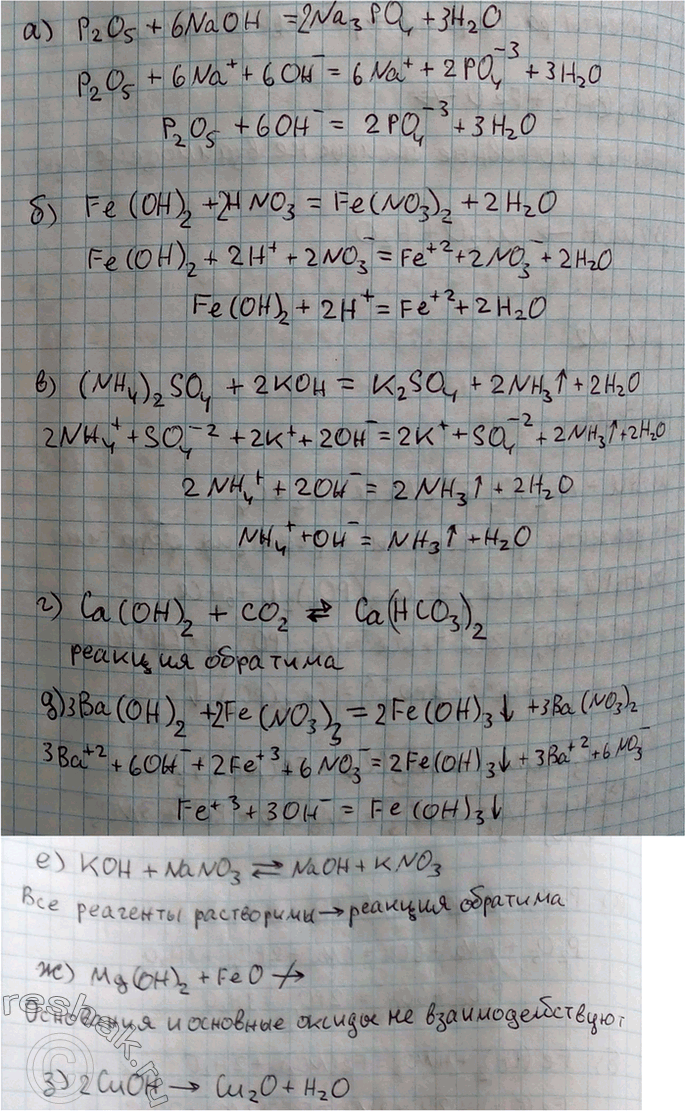 а) P₂O₅ + 6NaOH = 2Na₃PO₄ + 3H₂O
P₂O₅ + 6Na⁺ + 6OH⁻ = 6Na⁺ + 2PO₄⁻³ + 3H₂O
P₂O₅ + 6OH⁻ = 2PO₄⁻³ + 3H₂O
б) Fe(OH)₂ + 2HNO₃ = Fe(NO₃)₂ + 2H₂O
Fe(OH)₂ + 2H⁺ + 2NO₃⁻ = Fe⁺² + 2NO₃⁻ + 2H₂O
Fe(OH)₂ + 2H⁺ = Fe⁺² + 2H₂O
в) (NH₄)₂SO₄ + 2KOH = K₂SO₄ + 2NH₃↑ + 2H₂O
2NH₄⁺ + SO₄⁻² + 2K⁺ + 2OH⁻ = 2K⁺ + SO₄⁻² + 2NH₃↑ + 2H₂O
2NH₄⁺ + 2OH⁻ = 2NH₃↑ + 2H₂O
NH₄⁺ + OH⁻ = NH₃↑ + H₂O
г) Ca(OH)₂ + CO₂ ⇄ Ca(HCO₃)₂
реакция обратима
д) 3Ba(OH)₂ + 2Fe(NO₃)₃ = 2Fe(OH)₃↓ + 3Ba(NO₃)₂
3Ba⁺² + 6OH⁻ + 2Fe⁺³ + 6NO₃⁻ = 2Fe(OH)₃↓ + 3Ba⁺² + 6NO₃⁻
Fe⁺³ + 3OH⁻ = Fe(OH)₃↓
е) KOH + NaNO₃ ⇄ NaOH + KNO₃
Все реагенты растворимы → реакция обратима
ж) Mg(OH)₂ + FeO ↛
Основания и основные оксиды не взаимодействуют
з) 2CuOH → Cu₂O + H₂O
© reshak.ru